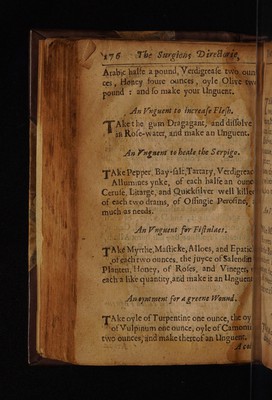 176 The Surgions Directorie,
Arabic halfe a pound, Verdigrease two oun
ces, Honey foure ounces, oyle Olive two
pound: and so make your Unguent.
An Vnguent to increase Flesh.
TAke the gum Dragagant, and dissolve
in Rose-water, and make an Unguent.
An Vnguent to heale the Serpigo.
TAke Pepper, Bay-salt, Tartary, Verdigreace
Allumnes ynke, of each halfe an ounce
Ceruse, Litarge, and Quicksilver well kille
of each two drams, of Offingie Perosine,
much as needs.
An Vnguent for Fistulaes.
TAke Myrrhe, Masticke, Alloes, and Epatic
of each two ounces, the juyce of Salendin
Planten, Honey, of Roses, and Vineger,
each a like quantity, and make it an Unguent
An oyntment for a greene Wound.
TAke oyle of Turpentine one ounce, the oy
of Vulpinum one ounce, oyle of Camomi
two ounces, and make thereof an Unguent.